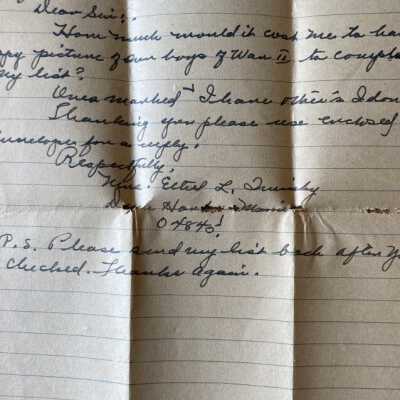 Dear Sir:.
How much would it cost me to ha
py picture of our boys of War II. to complet
my list?.
Ones marked I have other's I don
Thanking you please use enclosed
nvelope for a reply.
Respectfully,
Mrs. Ethel L.
Deer
04845!
P.S. Please send my list back after Y
checked. Thanks again.